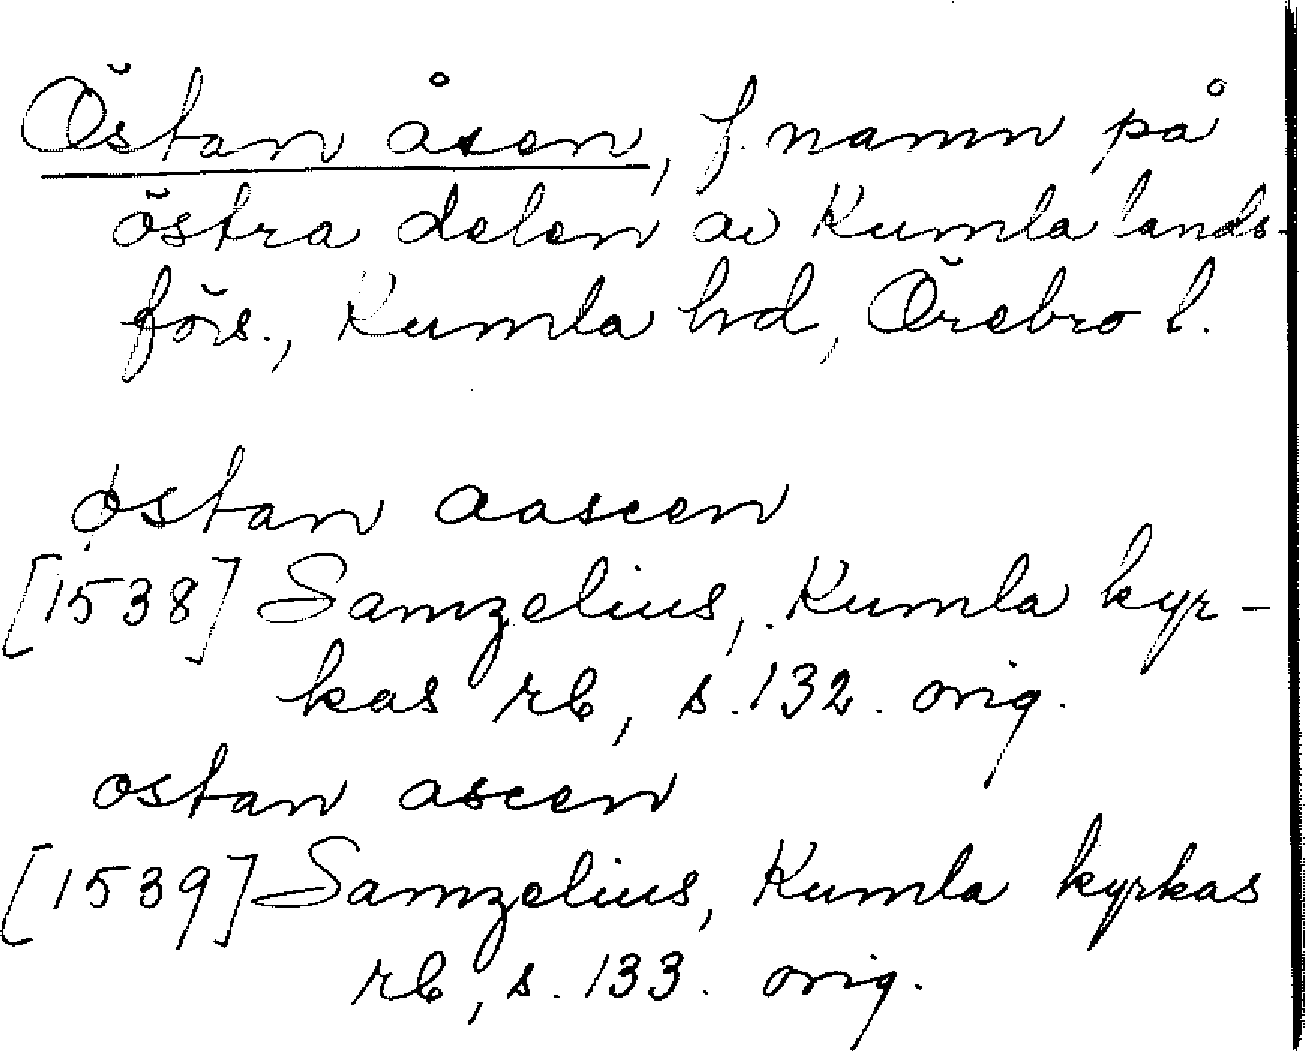 Östan åsen, f. namn på
östra delen av Kumla lands-
förs., Kumla hd, Örebro l.
østan aaseen
[1538] Samzelius, Kumla kyr-
kas rb, s. 132. orig.
ostan aseen
[1539] Samzelius, Kumla kyrkas
rb, s. 133. orig.